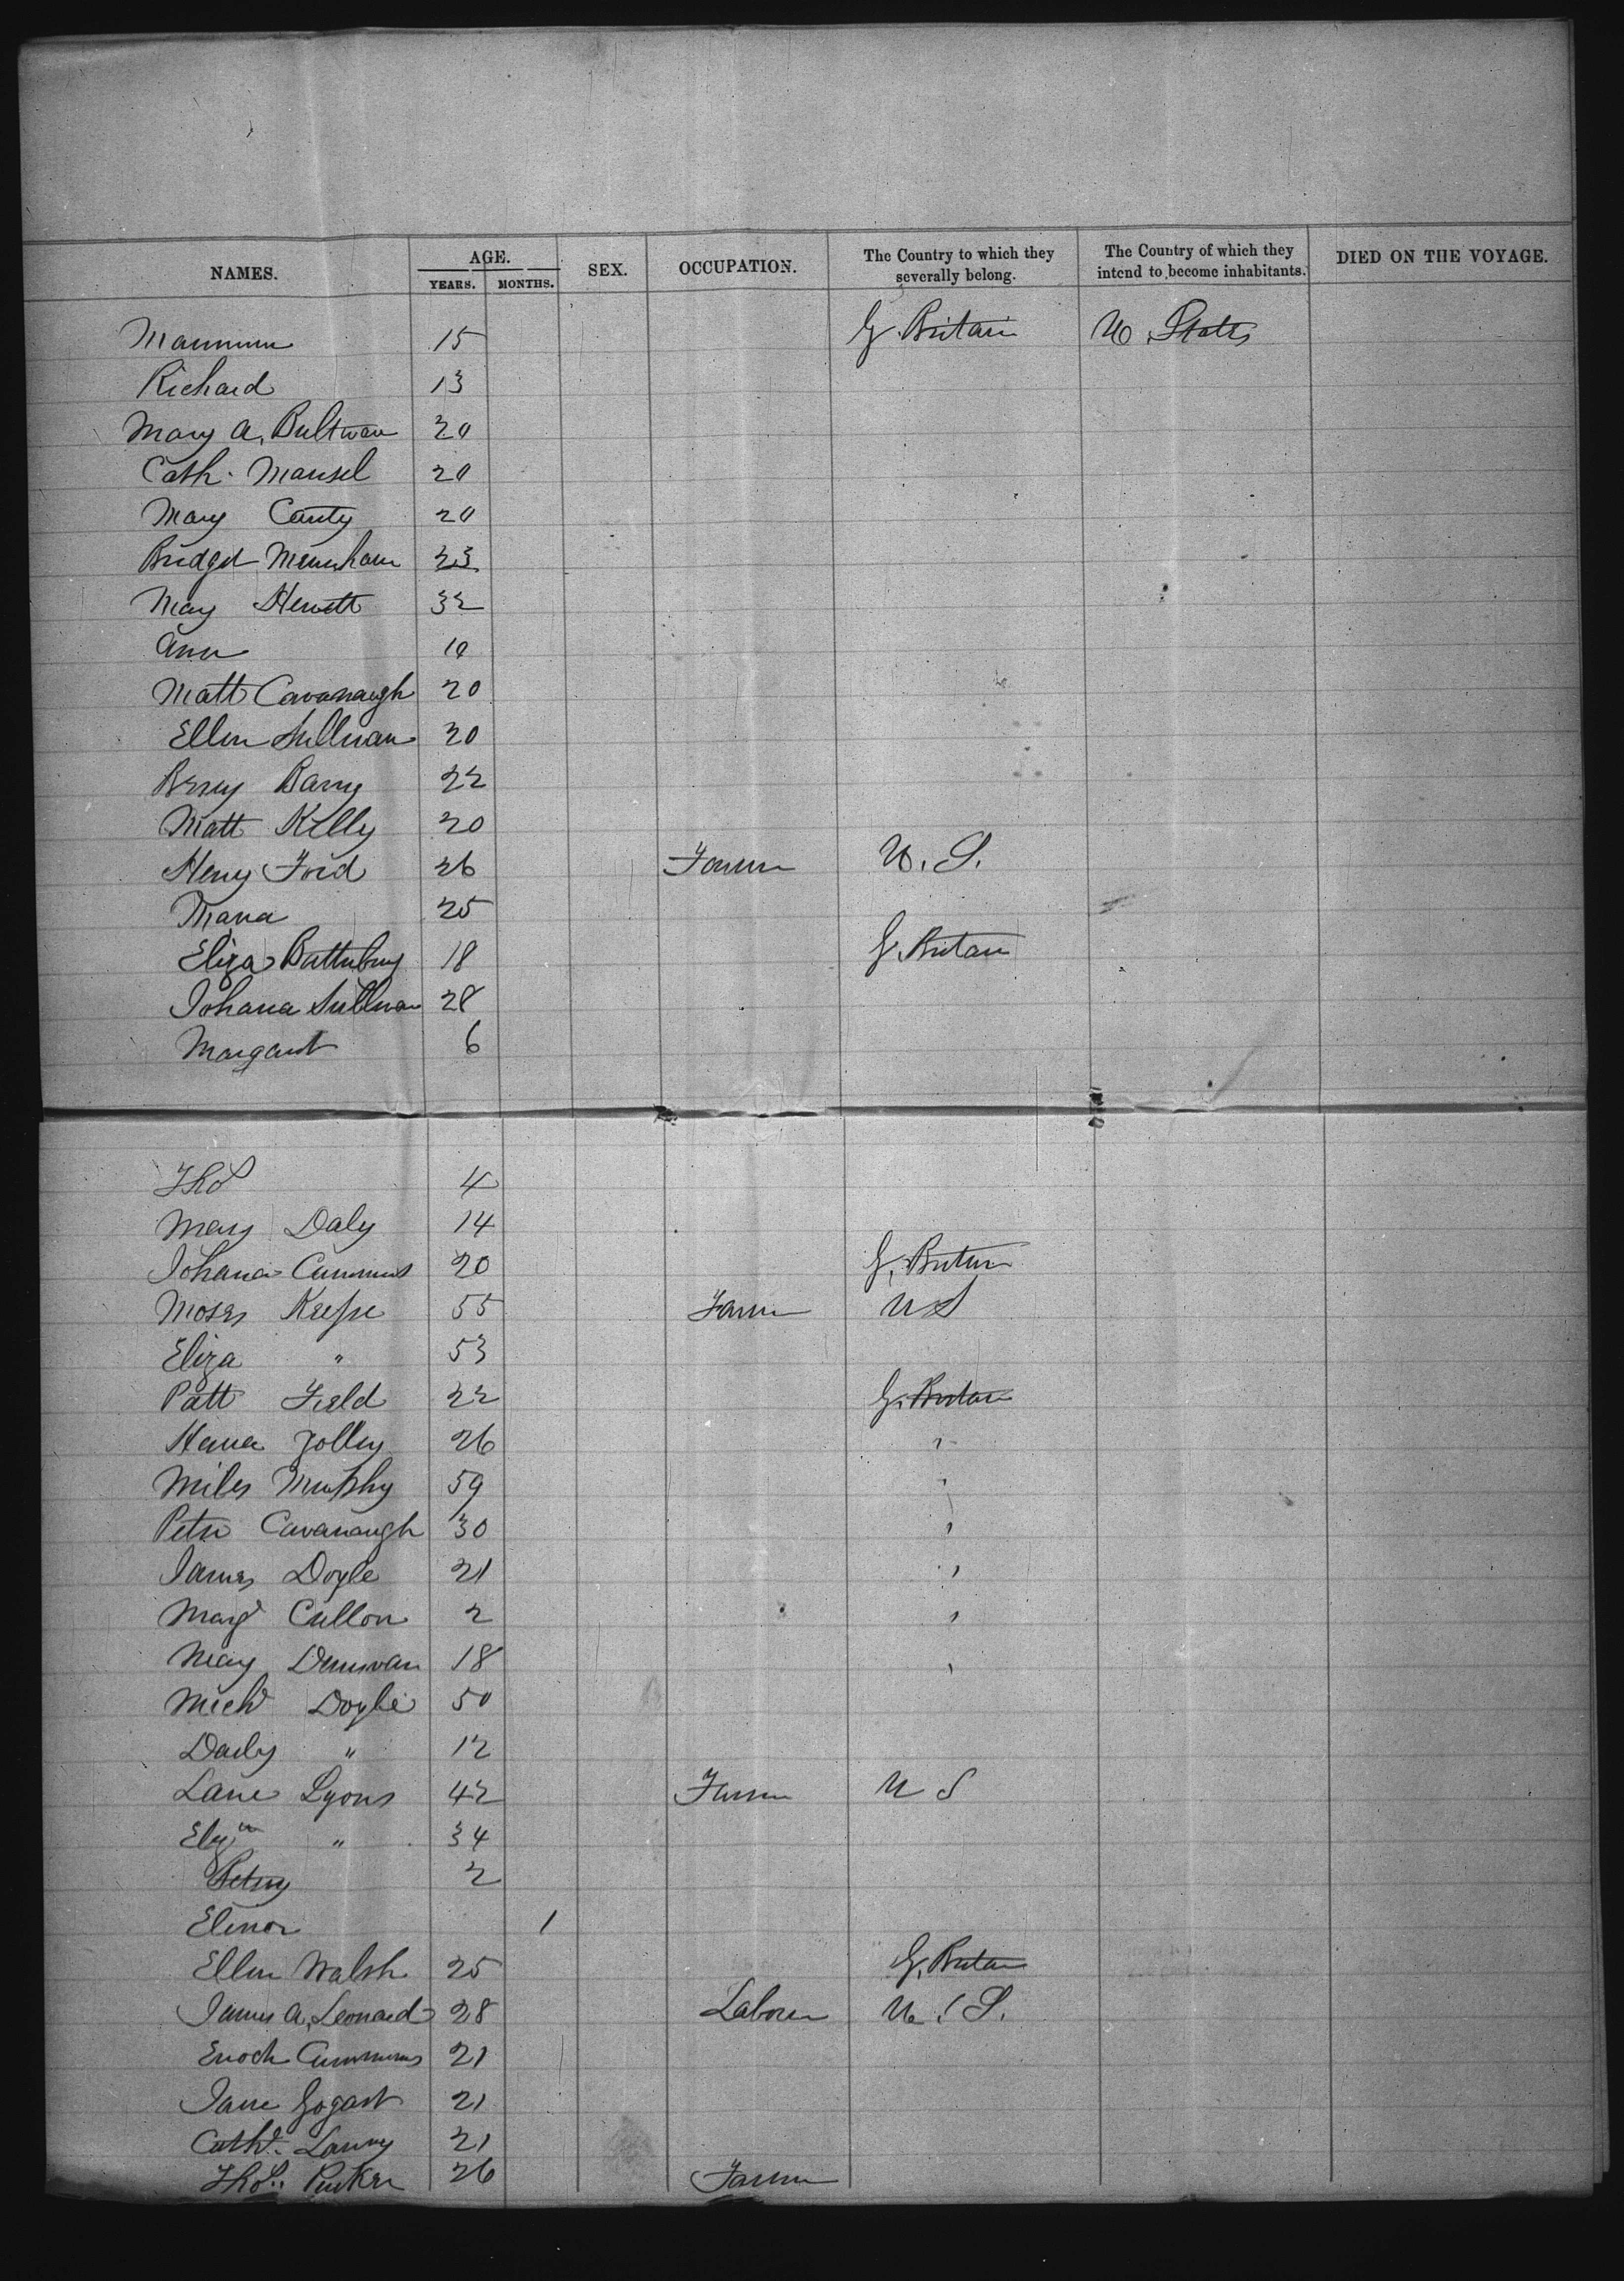 NAMES. AGE. SEX. OCCUPATION. The Country to which they severally belong. The Country of which they intend to become inhabitants. DIED ON THE VOYAGE.
YEARS. MONTHS.
15 G Britain U States
Richard 13
Mary A. 20
Cath. Mansel 20
Mary Canty 20
Bridget 23
Mary Hewett 32
Ann 10
Matt Cavanaugh 20
Ellen Sullivan 20
Barry 22
Matt Kelly 20
Henry Ford 26 Farmer U. S.
Maria 25
Eliza Battenbury 18 G. Britain
Johana Sullivan 28
Margaret 6
Thos 4
Mary Daly 14
Johana Cummins 20 G. Britain
Moses Keefe 55 Farmer U S
Eliza " 53
Patt Field 22 G. Britain
Hana Jolley 26 "
Miles Murphy 59 "
Peter Cavanaugh 30 "
James Doyle 21 "
Margt Cullon 2 "
Mary Dunivan 18 "
Michl Doyle 50
" 12
Lane Lyons 42 Farmer U S
" 34
Betsey 2
Elenor 1
Ellen Walsh 25 G. Britain
James A. Leonard 28 Laborer U. S.
Enoch Cummins 21
Jane 21
21
Thos. 26 Farmer